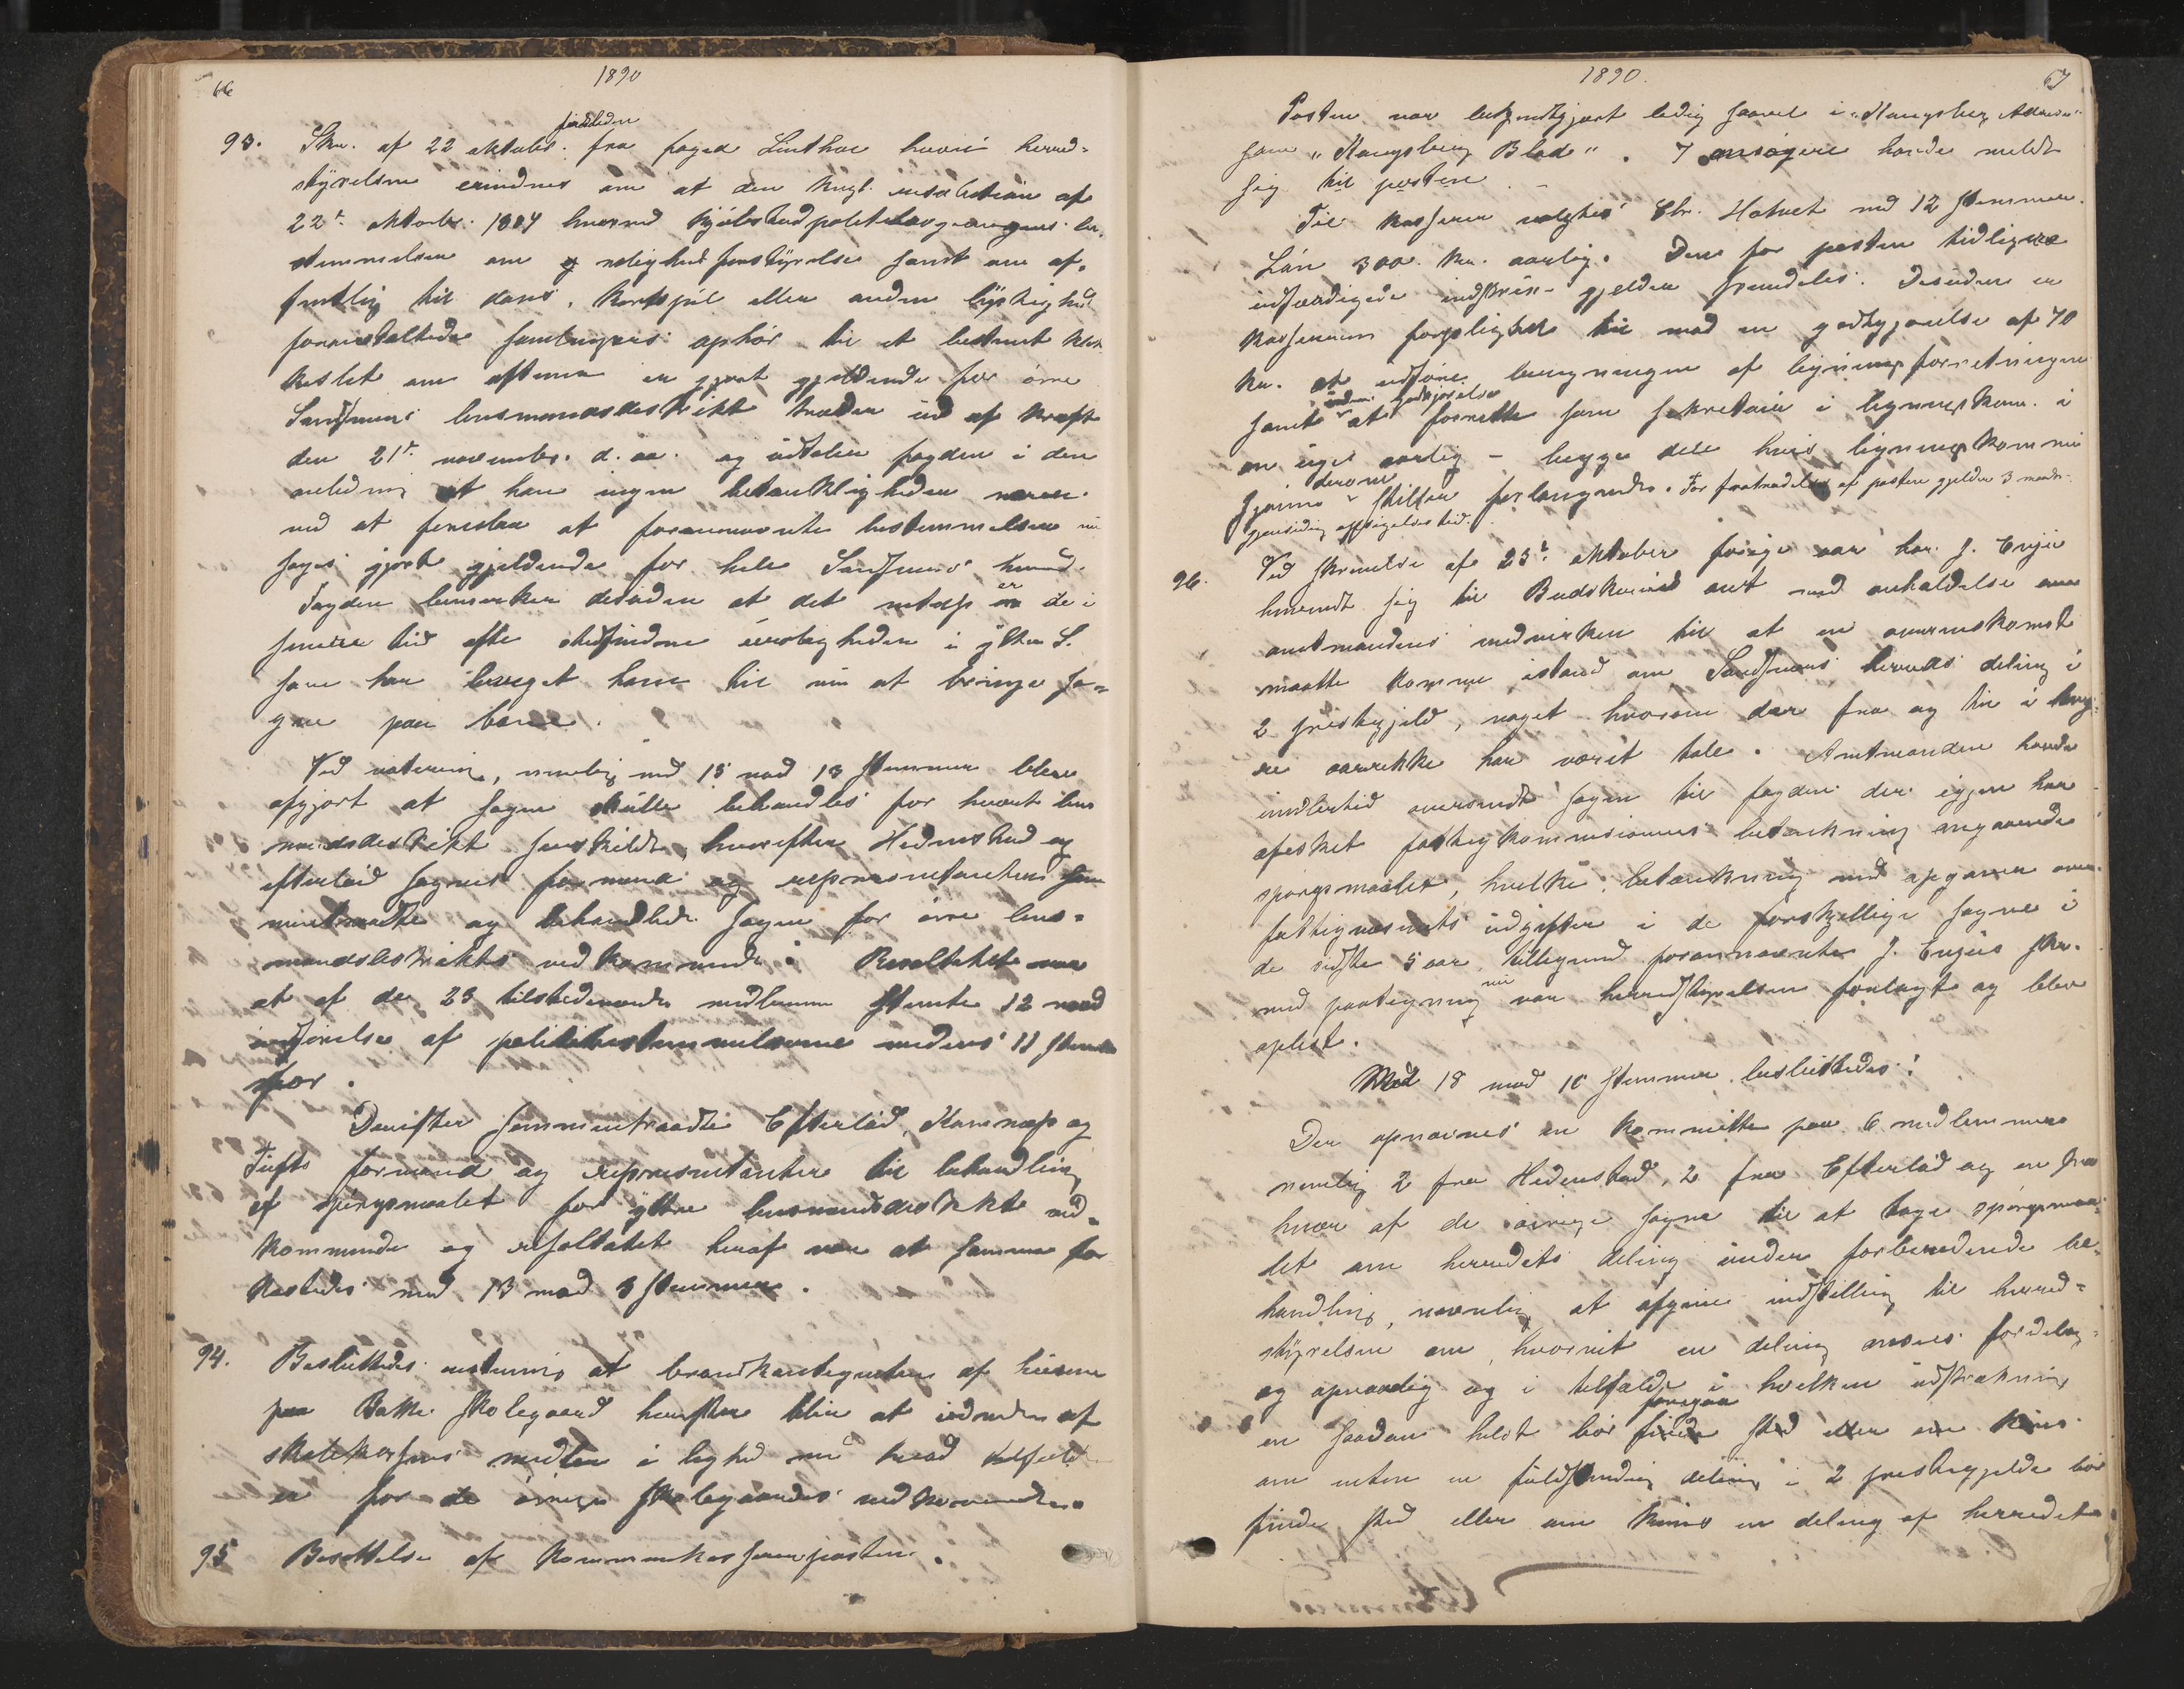 66
1890
forleden
93. Skr. af 22 oktober fra foged Linthoe hvori herred-
styrelsen erindres om at den kngl. resolution af
22de oktober 1884 hvorved kjøbstadpolitilovgivningens be-
stemmelser om rolighedsforstyrrelse samt om of-
fentlig til dans, kortspil eller anden lystighed
foranstaltede samlingers ophør til et bestemt klok-
keslet om aftenen er gjort gjeldende for övre
Sandsværs lensmandsdistrikt træder ud af kraft
den 21de november d. aa. og udtaler fogden i den
anledning at han ingen betænkligheder nærer
ved at foreslaa at forannævnte bestemmelser nu
søges gjort gjeldende for hele Sandsværs herred.
Fogden bemærker desuden at det netop er de i
senere tid ofte stedfundne uroligheder i ytre S.
som har bevæget ham til nu at bringe sa-
gen paa bane.
Ved votering, nemlig med 15 mod 13 stemmer blev
afgjort at sagen skulle behandles for hvert lens-
mandsdistrikt særskildt, hvorefter Hedenstad og
Efterlöd sognes formænd og repræsentanter sam-
mentraadte og behandlede sagen for övre lens-
mandsdistrikts vedkommende. Resultatet var
at af de 23 tilstedeværende medlemmer stemte 12 mod
indförelse af politibestemmelserne medens 11 stemte
for.
Derefter sammentraadte Efterlöd, Komnæs og
Tufts formænd og repræsentanter til behandling
af spörgsmaalet for ytre lensmandsdistrikts ved-
kommende og resultatet heraf var at samme for-
kastedes med 13 mod 3 stemmer.
94. Besluttedes enstemmig at brandkontigenten af husene
paa Bakke skolegaard herefter blir at udrede af
skolekassens midler i lighed med hvad tilfeldet
er for de övrige skolegaardes vedkommende.
95 Besettelse af kommunekassererposten.
1890.
67
Posten var bekjendtgjort ledig saavel i "Kongsberg Adresse"
som "Kongsberg Blad". 7 ansøgere havde meldt
sig til posten.
Til kasserer valgtes Chr. Hotvet med 12 stemmer.
Lön 300 kr. aarlig. Den for posten tidligere
udferdigede instrux gjelder fremdeles. Desuden er
kassereren forpligtet til mod en godtgjørelse af 70
kr. at udføre beregningen af ligningsforretningen
uden godtgjørelse
samt at forrette som sekretær i ligningskom. i
en uge aarlig – begge dele hvis ligningskommis-
derom
sjonen stiller forlangende. For fratrædelse af posten gjelder 3 mdrs.
gjensidig opsigelsestid.
96. Ved skrivelse af 23de oktober forrige aar har J. Enger
henvendt sig til Buskerud amt med anholdelse om
amtmandens medvirken til at en overenskomst
maatte komme istand om Sandsværs herreds deling i
2 prestegjeld, noget hvorom der fra og til i læng-
re aarrekke har været tale. Amtmanden havde
imidlertid oversendt sagen til fogden der igjen har
afæsket fattigkommisionens betænkning angaaende
spørgsmaalet, hvilke betænkning med opgaver over
fattigvæsenets udgifter i de forskjellige sogne i
de sidste 5 aar tilligemed forannævnte J. Engers skr.
nu
med paategning var herredstyrelsen forelagt og blev
oplest.
Med 18 mod 10 stemmer besluttedes:
Der opnævnes en kommitte paa 6 medlemmer
nemlig 2 fra Hedenstad, 2 fra Efterlöd og en fra
hver af de øvrige sogne til at tage spørgsmaa-
let om herredets deling under forberedende be-
handling, nemlig at afgive indstilling til herred-
styrelsen om hvorvidt en deling ansees fordelag-
og opnaaelig og i tilfælde i hvilken udstrækning
foregaa
en saadan heldst bør finde sted eller om kuns
om enten en fuldstændig deling i 2 prestegjelde bør
finde sted eller om kuns en deling af herredet